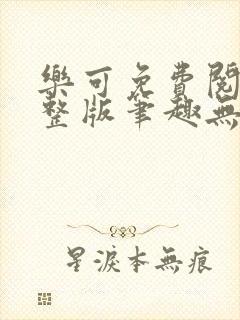 樂可免費閱
整版筆趣無
星淚本無痕